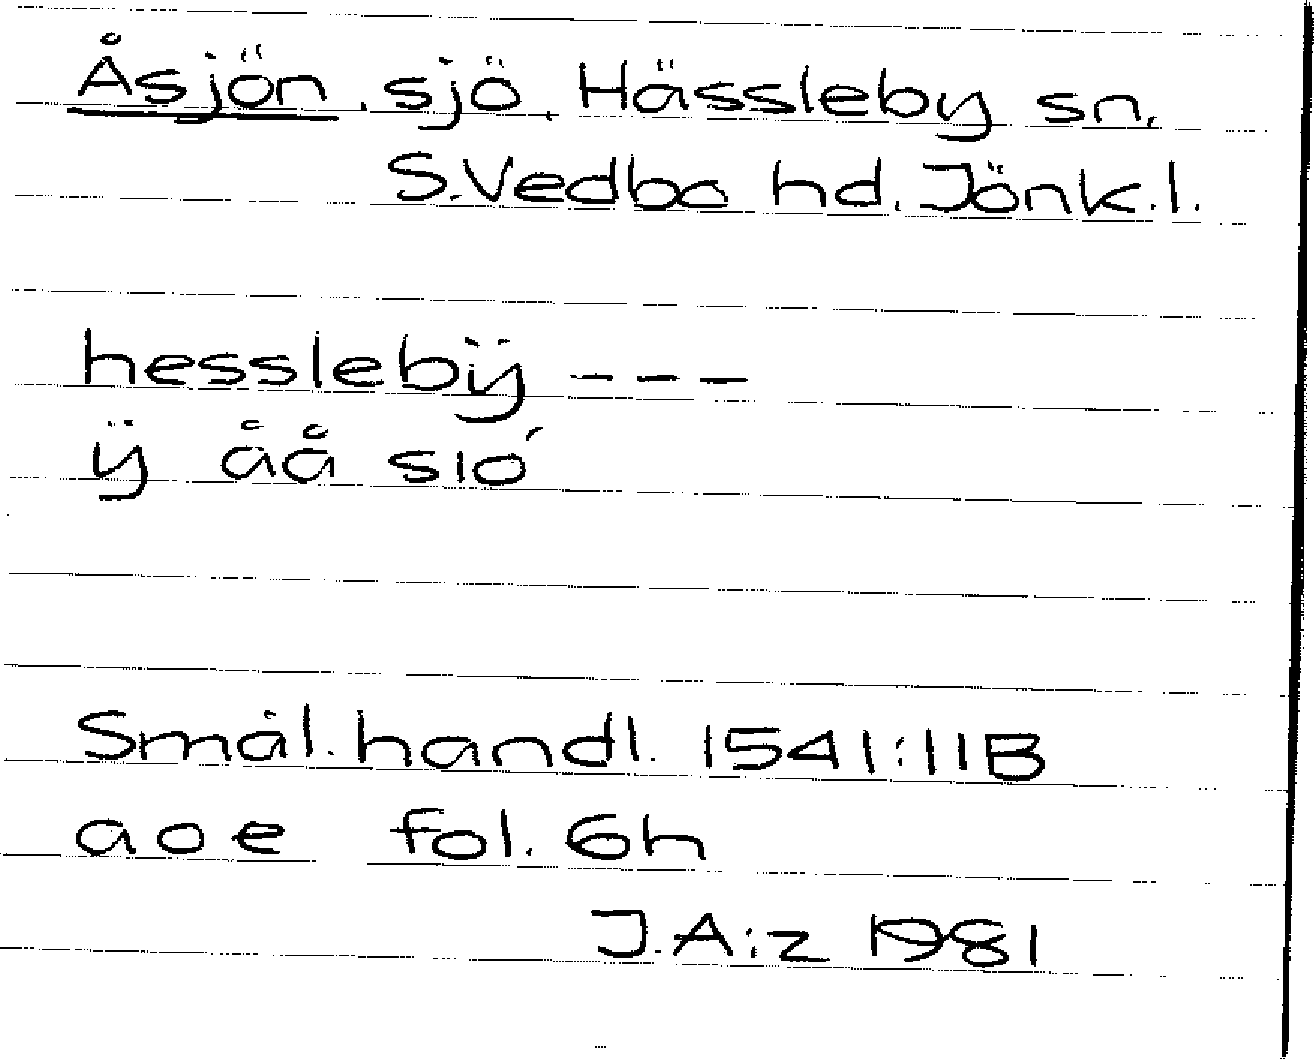 Åsjön, sjö, Hässleby sn,
S.Vedbo hd. Jönk.l.
hesslebÿ - - -
ÿ åå sió
Smål. handl. 1541:11B
a o e fol. 6h
J.A:z 1981